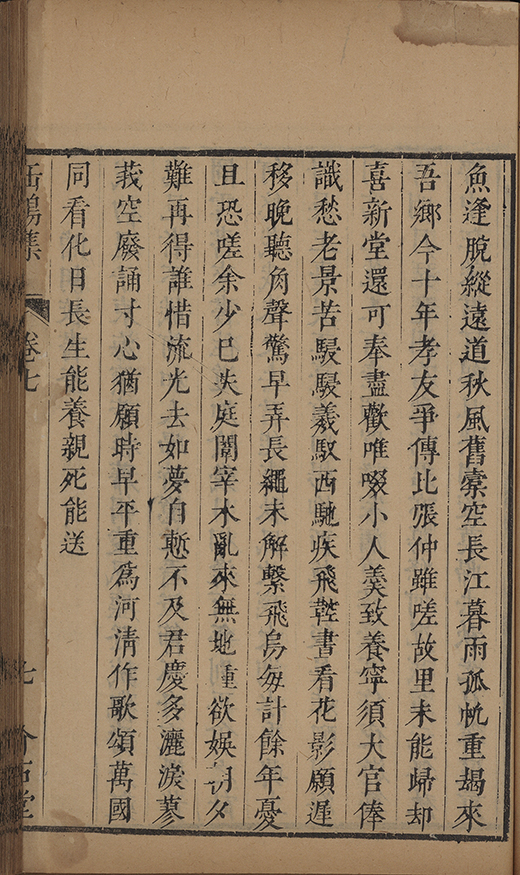 魚逢脫縱遠道秋風舊橐空長江暮雨孤帆重朅來
吾鄉今十年孝友爭傳比張仲雖嗟故里未能歸却
喜新堂還可奉盡歡唯啜小人羹致養寧須大官俸
識愁老景苦駸駸羲馭西馳疾飛鞚晝看花影願遲
移晚聽角聲驚早弄長繩未解繫飛烏每計餘年憂
且恐嗟余少已失庭闈宰木亂來無地種欲娛朝夕
難再得誰惜流光去如夢自慙不及君慶多灑淚蓼
莪空廢誦寸心猶願時早平重爲河清作歌頌萬國
同看化日長生能養親死能送
缶鳴集
卷七
七